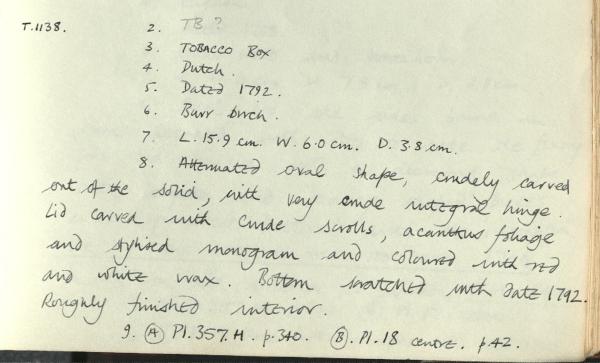 T.1138. 2. TB?
3. TOBACCO BOX
4. Dutch.
5. Dated 1792.
6. Burr birch.
7. L. 15.9 cm. W. 6.0 cm. D. 3.8 cm.
8. Attenuated oval shape, crudely carved
out of the solid, with very crude integral hinge.
Lid carved with crude scrolls, acanthus foliage
and stylised monogram and coloured with red
and white wax. Bottom scratched with date 1792.
Roughly finished interior.
9. (A) Pl. 357.H. p.340. (B). Pl. 18 centre. p.42.